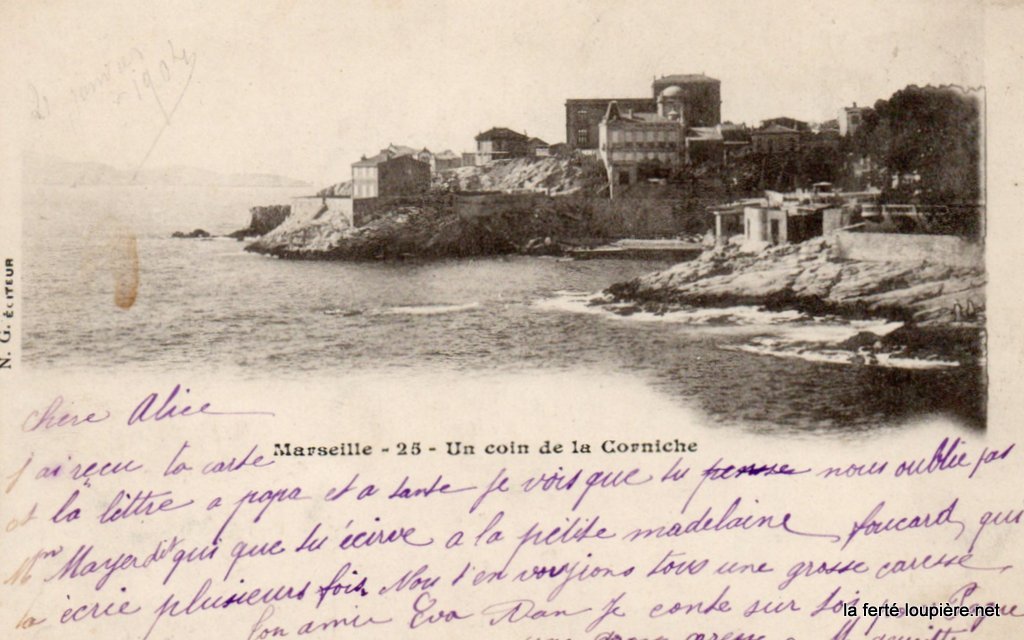 2 janvier
1904
N. G. ÉDITEUR
chère Alice
Marseille - 25 - Un coin de la Corniche
j'ai reçu ta carte
et la littre a papa et a tante je vois que tu pense nous oublie pas
Mm Mayer dit qui que tu écirve a la petite madelaine foucard, qui
la écrie plusieurs fois Nou t'en voyions tous une grosse caresse
Ton amie Eva Dan Je conte sur toi pour
une
la ferté loupière.net